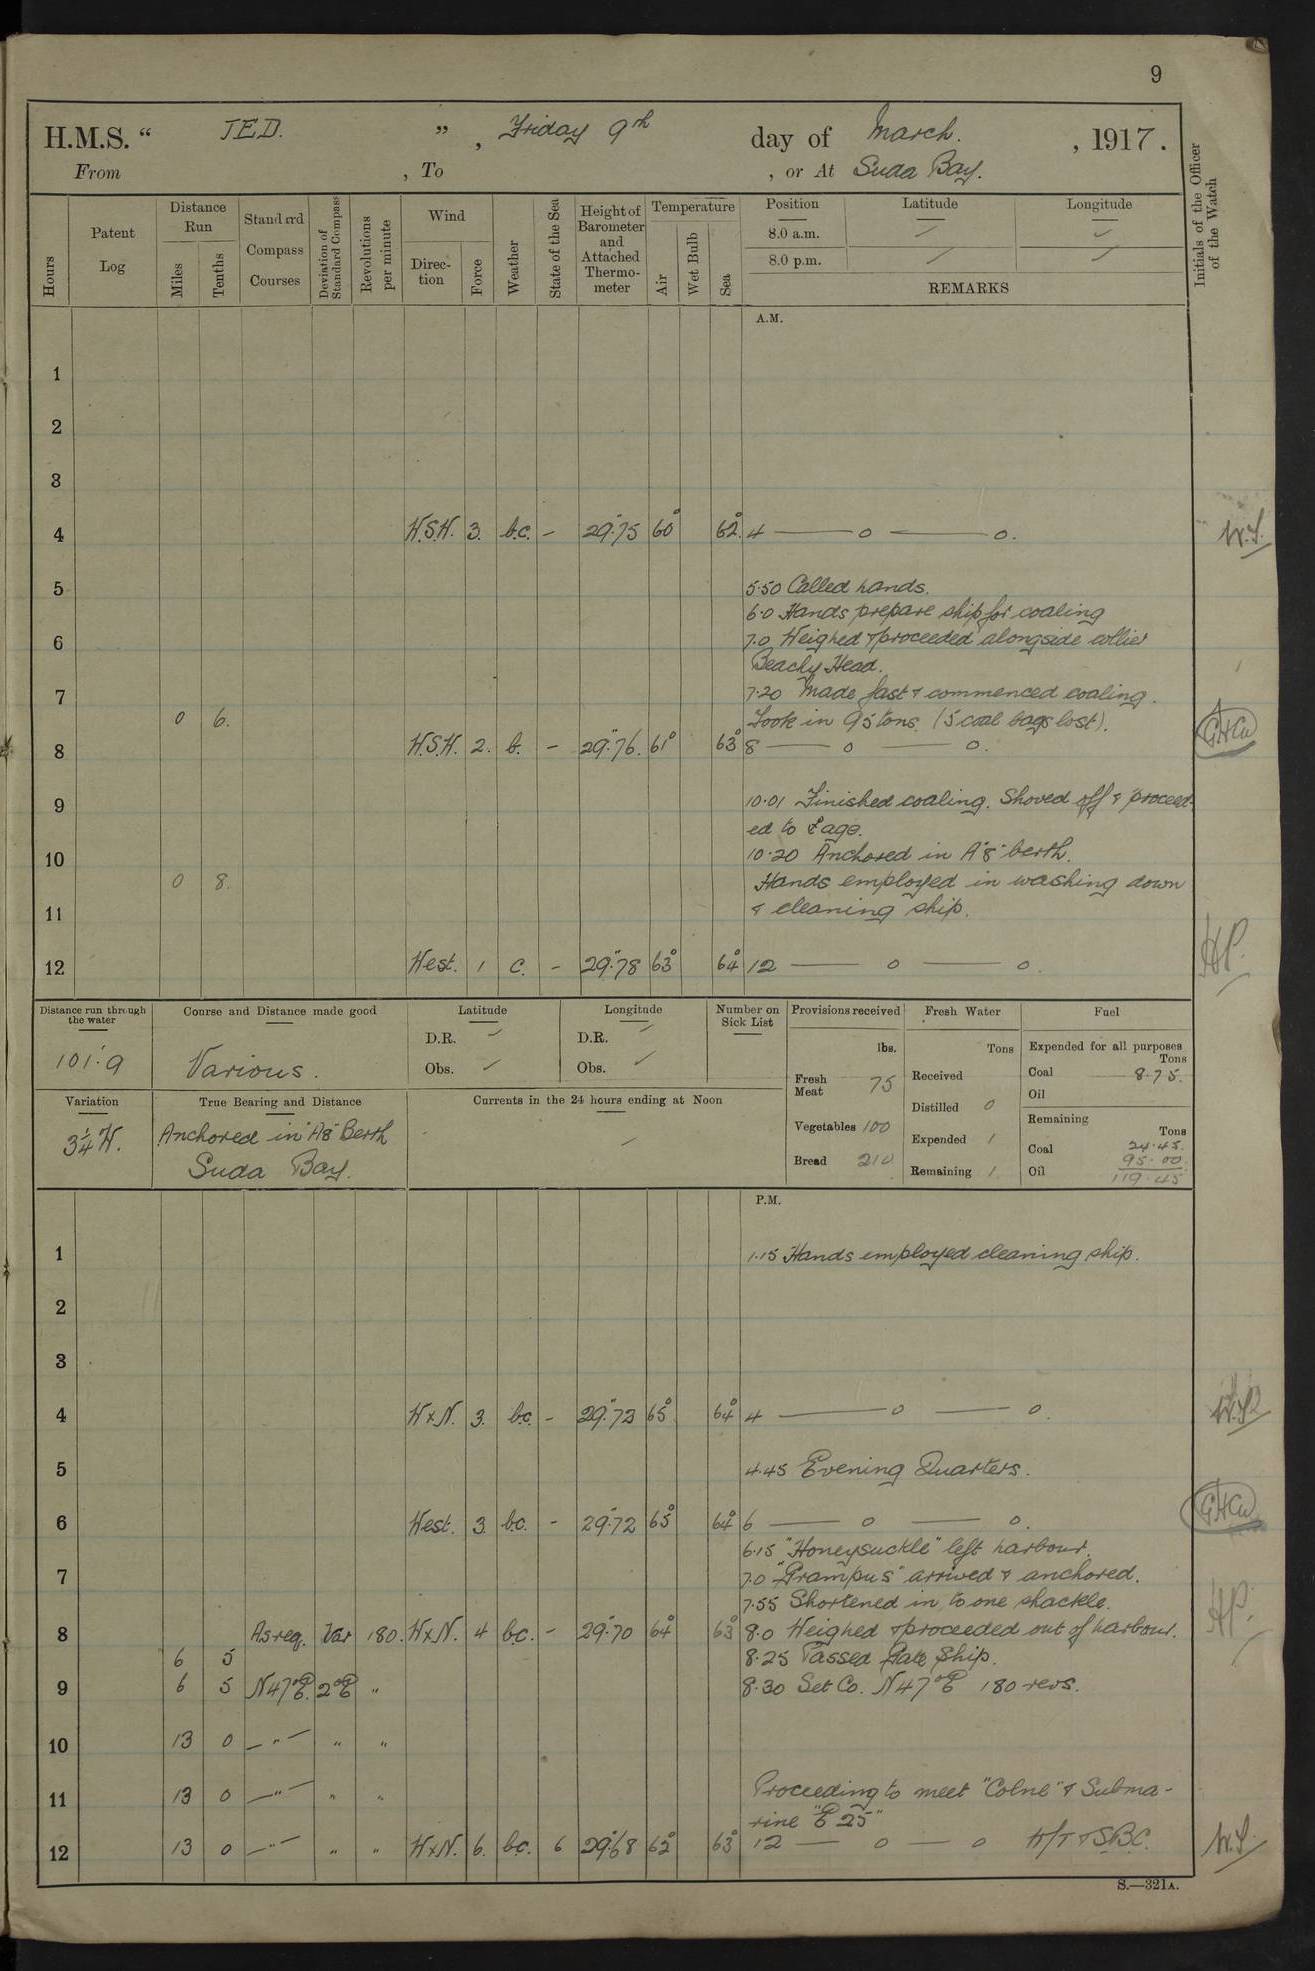 9
H.M.S. " JED. " , Friday 9th day of March. , 1917.
From , To , or At Suda Bay.
Hours
Patent Log
Distance Run
Miles
Tenths
Standard Compass Courses
Deviation of Standard Compass
Revolutions per minute
Wind
Direction
Force
Weather
State of the Sea
Height of Barometer and Attached Thermometer
Temperature
Air
Wet Bulb
Sea
Position Latitude Longitude
8.0 a.m.
8.0 p.m.
REMARKS
Initials of the Officer of the Watch
A.M.
1
2
3
4 W.S.W. 3. b.c. - 29.75 60° 62° 4 — o — o.
5 5.50 Called hands.
6.0 Hands prepare ship for coaling
6 7.0 Weighed & proceeded alongside collier
Beachy Head.
7 7.20 Made fast & commenced coaling.
0 6. Took in 95 tons. (5 coal bags lost).
8 W.S.W. 2. b. - 29.76. 61° 63° 8 — o — o.
9 10.01 Finished coaling. Shoved off & proceed-
ed to age.
10 10.20 Anchored in A"8" berth.
0 8. Hands employed in washing down
11 & cleaning ship.
12 West. 1 c. - 29.78 63° 64° 12 — o — o. HP.
Distance run through the water
101.9
Course and Distance made good
Various.
Latitude
D.R.
Obs.
Longitude
D.R.
Obs.
Number on Sick List
Provisions received
lbs.
Fresh Meat 75
Vegetables 100
Bread 210
Fresh Water
Tons
Received
Distilled 0
Expended 1
Remaining 1.
Fuel
Expended for all purposes
Tons
Coal 8.75.
Oil
Remaining
Tons
Coal 24.45.
95.00.
Oil 119.45
Variation
3¼ W.
True Bearing and Distance
Anchored in "A8" Berth
Suda Bay.
Currents in the 24 hours ending at Noon
P.M.
1 1.15 Hands employed cleaning ship.
2
3
4 W x N. 3. b.c. - 29.73 65° 64° 4 — o — o.
5 4.45 Evening Quarters.
6 West. 3. b.c. - 29.72 65° 64° 6 — o — o.
6.15 "Honeysuckle" left harbour.
7 7.0 "Grampus" arrived & anchored.
7.55 Shortened in to one shackle.
8 As req. Var 180. W x N. 4 b.c. - 29.70 64° 63° 8.0 Weighed & proceeded out of harbour. HP.
6 5 8.25 Passed Gate Ship.
9 6 5 N47°E. 2°E " 8.30 Set Co. N47°E 180 revs.
10 13 0 — " — " "
11 13 0 — " — " " Proceeding to meet "Colne" & Subma-
rine "E 25"
12 13 0 — " — " " W x N. 6. b.c. 6 29.68 62° 63° 12 — o — o H/T & S.B.C. W.S.
S.—321A.